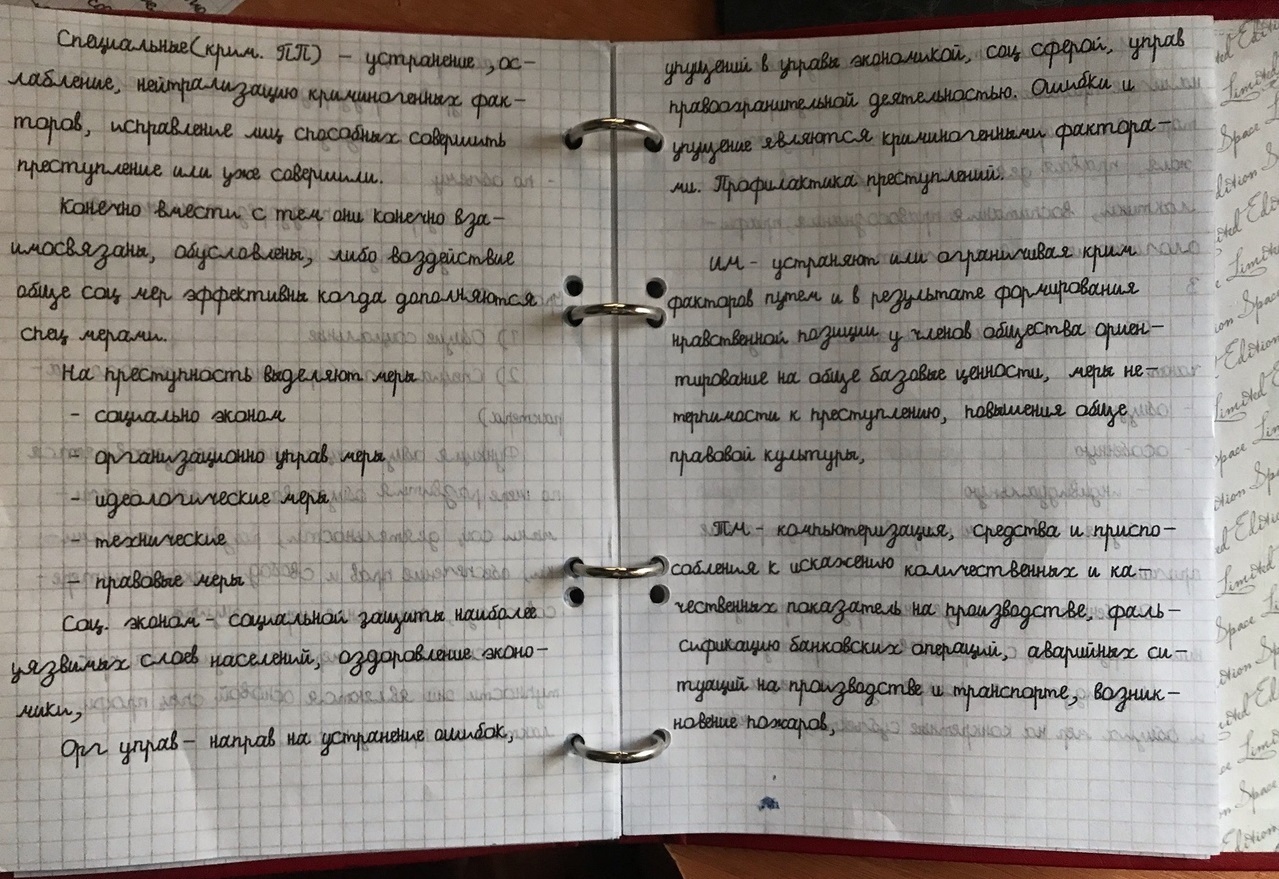 Специальные(крим. ПП) – устранение ,ос-
лабление, нейтрализацию криминогенных фак-
торов, исправление лиц способных совершить
преступление или уже совершили.
Конечно вмести с тем они конечно вза-
имосвязаны, обусловлены, либо воздействие
обще соц мер эффективны когда дополняются
спец мерами.
На преступность выделяют меры
- социально эконом
- организационно управ меры
- идеологические меры
- технические
- правовые меры
Соц. эконом – социальной защиты наиболее
уязвимых слоев населений, оздоровление эконо-
мики,
Орг управ – направ на устранение ошибок,
упущений в управы экономикой, соц сферой, управ
правоохранительной деятельностью. Ошибки и
упущение являются криминогенными фактора-
ми. Профилактика преступлений.
ИМ - устраняют или ограничивая крим
факторов путем и в результате формирования
нравственной позиции у членов общества ориен-
тирование на обще базовые ценности, меры не-
терпимости к преступлению, повышения обще
правовой культуры,
ТМ - компьютеризация, средства и приспо-
собления к искажению количественных и ка-
чественных показатель на производстве, фаль-
сификацию банковских операций, аварийных си-
туаций на производстве и транспорте, возник-
новение пожаров,
Limited Edition
Space